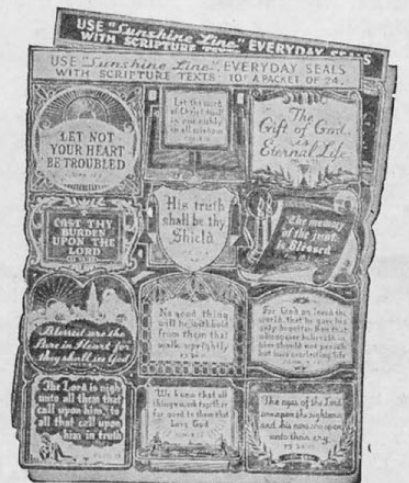 USE "Sunshine Line" EVERYDAY SEALS
WITH SCRIPTURE TEXTS
USE "Sunshine Line" EVERYDAY SEALS
WITH SCRIPTURE TEXTS 10¢ A PACKET OF 24.
LET NOT
YOUR HEART
BE TROUBLED
Let the word
of Christ dwell
in you richly
in all wisdom
The
Gift of God
is
Eternal Life
CAST THY
BURDEN
UPON THE
LORD
His truth
shall be thy
Shield
The memory
of the just
is Blessed
Blessed are the
Pure in Heart for
they shall see God
No good thing
will he withhold
from them that
walk uprightly
For God so loved the
world, that he gave his
only begotten Son that
whosoever believeth in
him should not perish
but have everlasting life
The Lord is nigh
unto all them that
call upon him, to
all that call upon
him in truth
We know that all
things work together
for good to them that
Love God
The eyes of the Lord
are upon the righteous
and his ears are open
unto their cry.